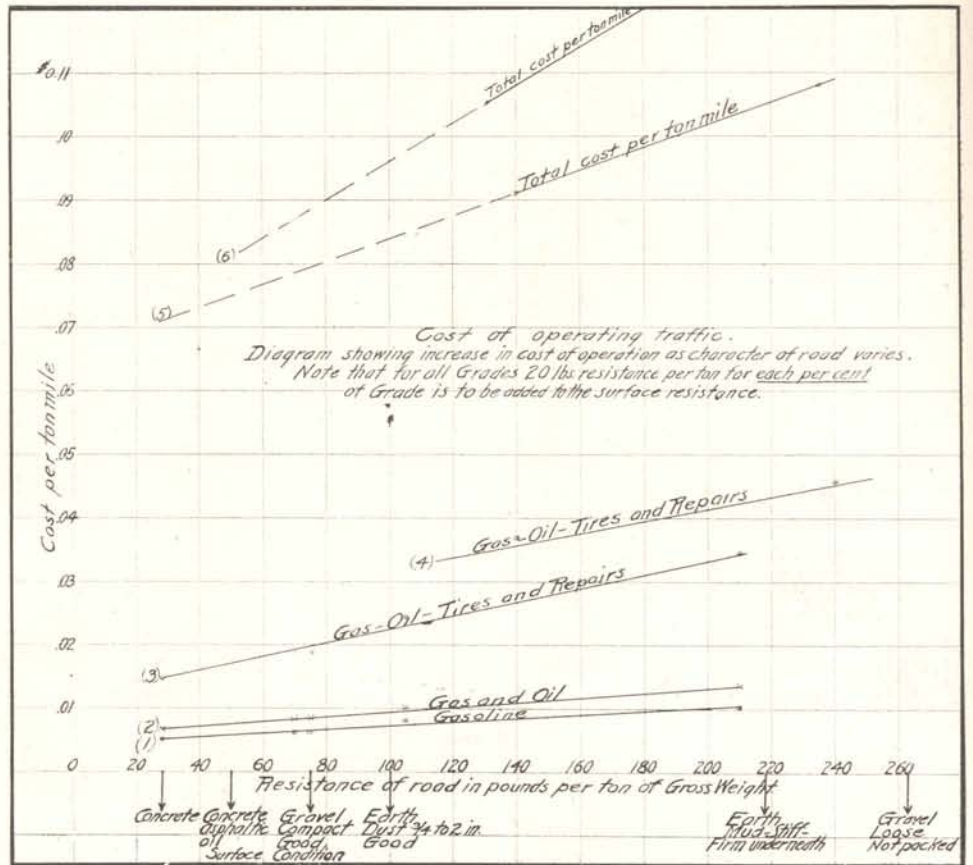 $0.11
.10
.09
.08
.07
.06
.05
.04
.03
.02
.01
Cost per ton mile
(6)
Total cost per ton mile
(5)
Total cost per ton mile
Cost of operating traffic.
Diagram showing increase in cost of operation as character of road varies.
Note that for all Grades 20 lbs resistance per ton for each per cent
of Grade is to be added to the surface resistance.
(4)
Gas-Oil-Tires and Repairs
(3)
Gas-Oil-Tires and Repairs
(2)
Gas and Oil
(1)
Gasoline
0 20 40 60 80 100 120 140 160 180 200 220 240 260
Resistance of road in pounds per ton of Gross Weight
Concrete
Concrete
asphaltic
oil
Surface
Gravel
Compact
Good
Condition
Earth
Dust 3/4 to 2 in.
Good
Earth
Mud-Stiff-
Firm underneath
Gravel
Loose
Not packed